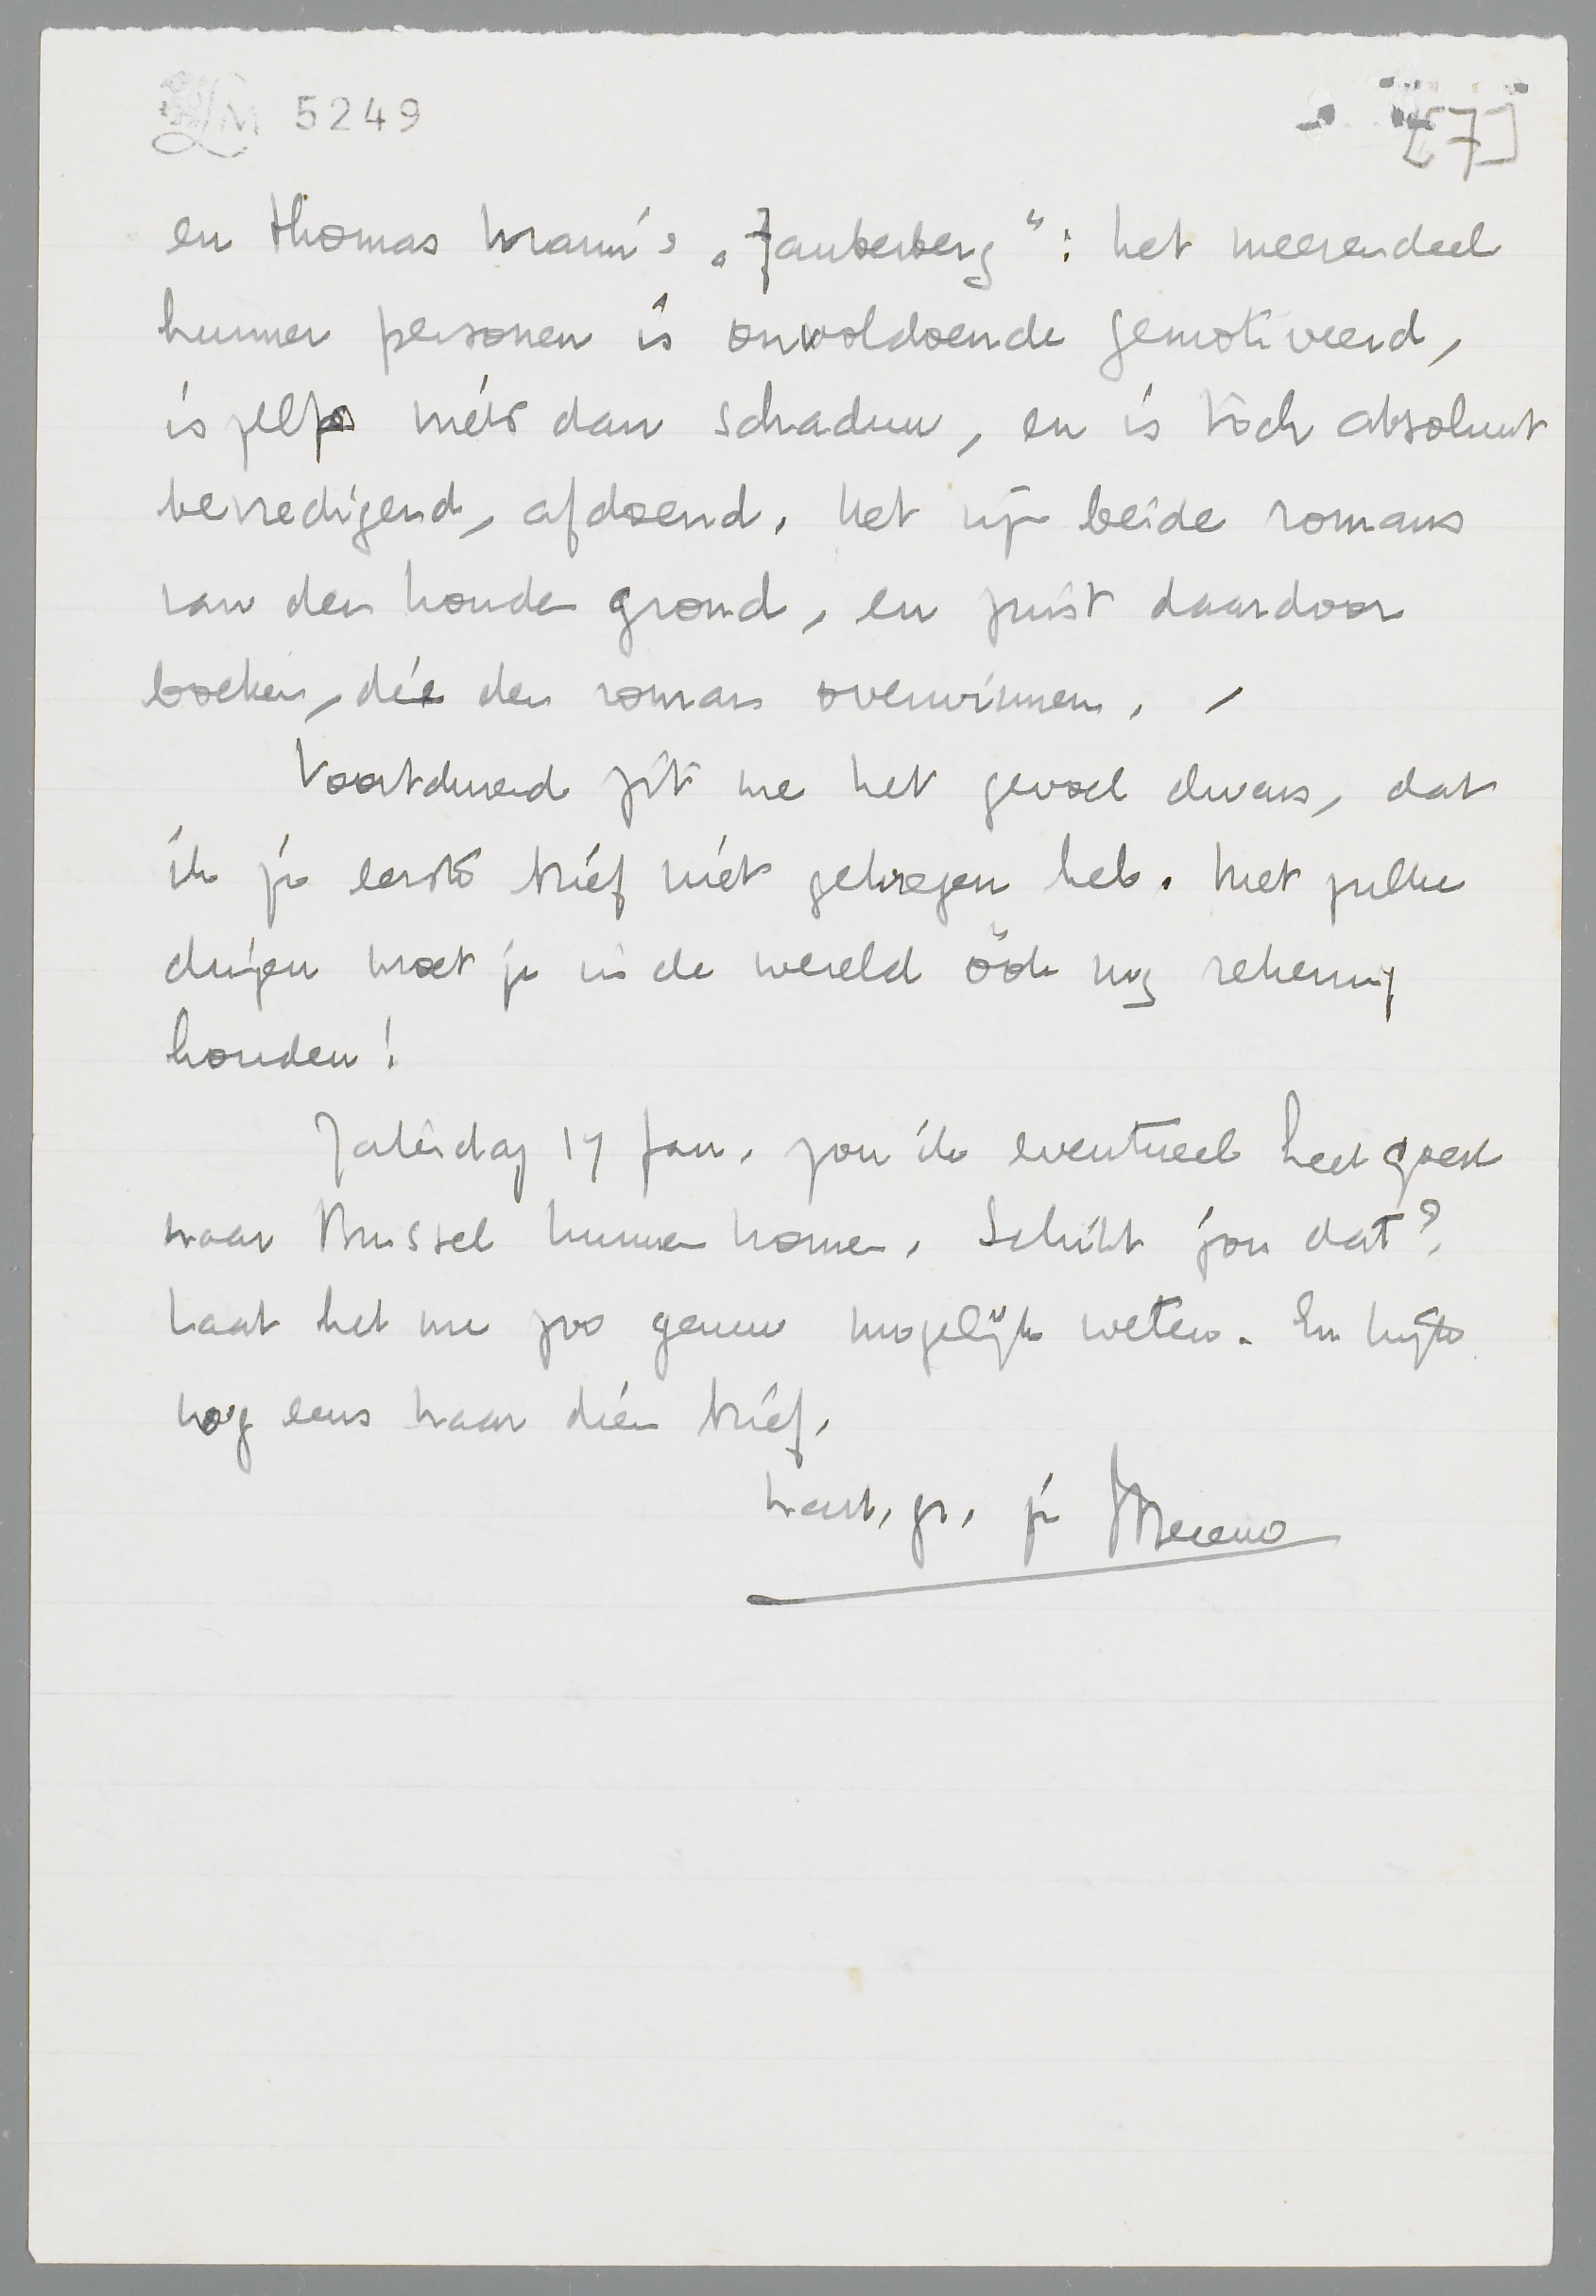 LM 5249
[7]
en Thomas Mann's „Zauberberg": het meerendeel
hunner personen is onvoldoende gemotiveerd,
is zelfs niet dan schaduw, en is tòch absoluut
bevredigend, afdoend. Het zijn beide romans
van den kouden grond, en juist daardoor
boeken, die den roman overwinnen.
Voortdurend zit me het gevoel dwars, dat
ik je eerste brief niet gekregen heb. Met zulke
dingen moet je in de wereld óók nog rekening
houden!
Zaterdag 17 Jan. zou ik eventueel heel goed
naar Brussel kunnen komen. Schikt jou dat?
Laat het me zoo gauw mogelijk weten. En kijk
nog eens naar dien brief.
hart. gr. je Menno